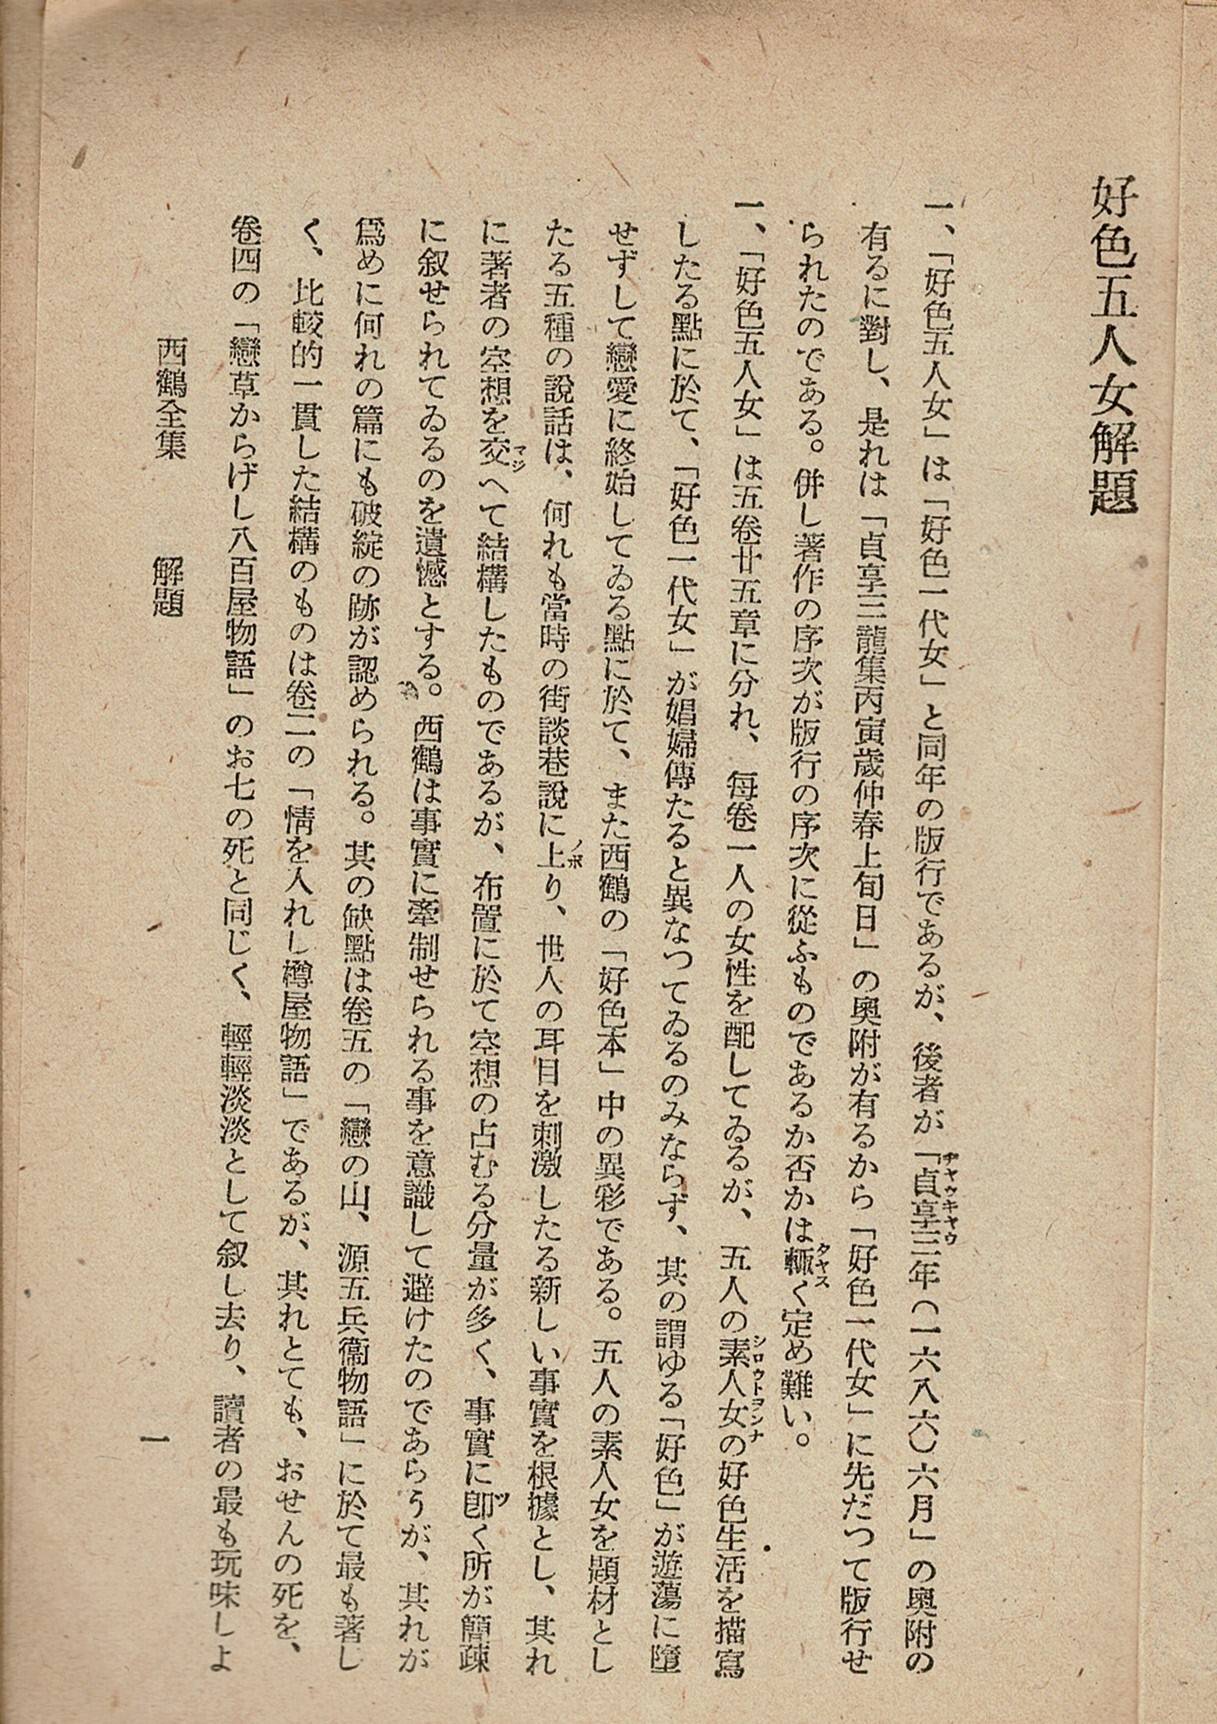 好色五人女解題
一、「好色五人女」は「好色一代女」と同年の版行であるが、後者が「貞享三年(一六八六)六月」の奧附の
有るに對し、是れは「貞享三龍集丙寅歲仲春上旬日」の奧附が有るから「好色一代女」に先だつて版行せ
られたのである。併し著作の序次が版行の序次に從ふものであるか否かは輙く定め難い。
一、「好色五人女」は五卷廿五章に分れ、每卷一人の女性を配してゐるが、五人の素人女の好色生活を描寫
したる點に於て、「好色一代女」が娼婦傳たると異なつてゐるのみならず、其の謂ゆる「好色」が遊蕩に墮
せずして戀愛に終始してゐる點に於て、また西鶴の「好色本」中の異彩である。五人の素人女を題材とし
たる五種の說話は、何れも當時の街談巷說に上り、世人の耳目を刺激したる新しい事實を根據とし、其れ
に著者の空想を交へて結構したものであるが、布置に於て空想の占むる分量が多く、事實に卽く所が簡疎
に叙せられてゐるのを遺憾とする。西鶴は事實に牽制せられる事を意識して避けたのであらうが、其れが
爲めに何れの篇にも破綻の跡が認められる。其の缺點は卷五の「戀の山、源五兵衞物語」に於て最も著し
く、比較的一貫した結構のものは卷二の「情を入れし樽屋物語」であるが、其れとても、おせんの死を、
卷四の「戀草からげし八百屋物語」のお七の死と同じく、輕輕淡淡として叙し去り、讀者の最も玩味しよ
西鶴全集 解題 一